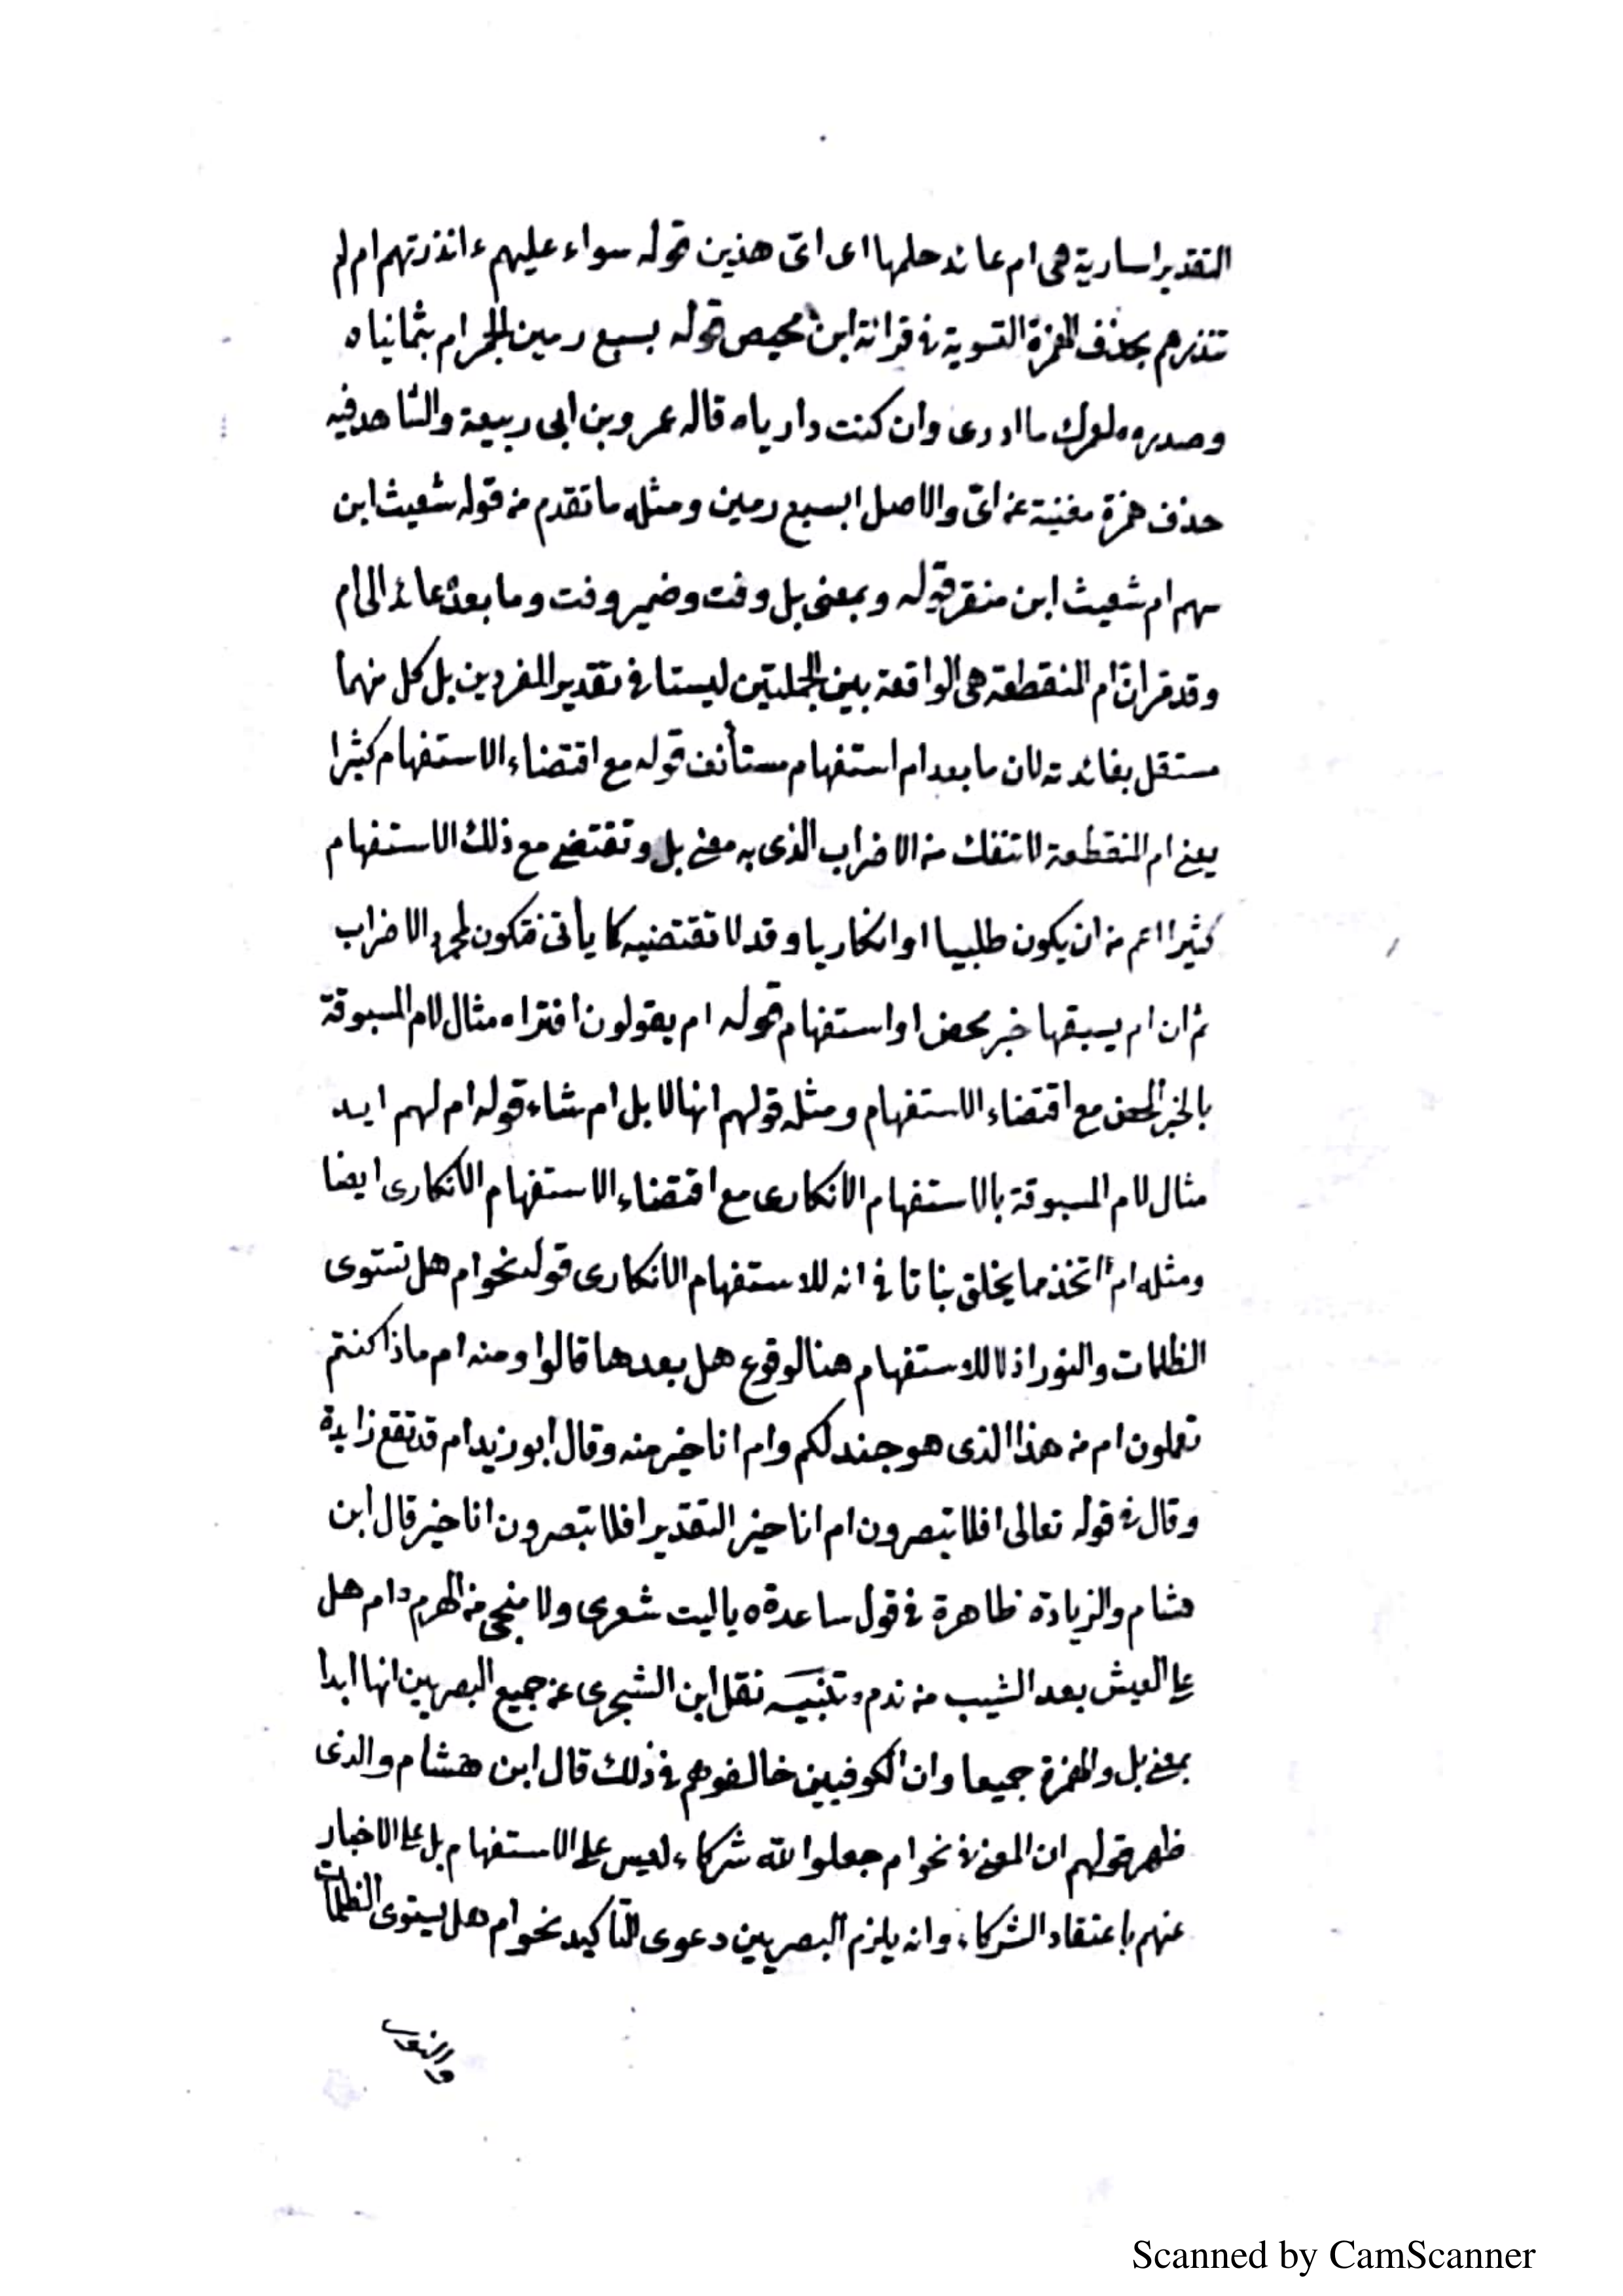 التقدير اسارية هى ام عائد حلمها اى اىّ هذين قوله سواء عليهم ءانذرتهم ام لم
تنذرهم بحذف الهمزة التسوية فى قرائة ابن محيصن قوله بسبع رمين الجمر ام بثمانياه
وصدره ه لعمرك ما ادرى وان كنت داريا ه قاله عمرو بن ابى ربيعة والشاهد فيه
حذف همزة مغنية عن اىّ والاصل ابسبع رمين ومثله ما تقدم من قوله شعيث ابن
سهم ام شعيث ابن منقر قوله وبمعنى بل وفت وضمير وفت وما بعده عائد الى ام
وقد مر ان ام المنقطعة هى الواقعة بين الجملتين ليستا فى تقدير المفردين بل كل منهما
مستقل بفائدته لان ما بعد ام استفهام مستأنف قوله مع اقتضاء الاستفهام كثيرا
يعنى ام المنقطعة لا تنفك من الاضراب الذى به معنى بل وتقتضى مع ذلك الاستفهام
كثيرا اعم من ان يكون طلبيا او انكاريا وقد لا تقتضيه كما يأتى فتكون لمجرد الاضراب
ثم ان ام يسبقها خبر محض او استفهام قوله ام يقولون افتراه مثال لام المسبوقة
بالخبر المحض مع اقتضاء الاستفهام ومثله قولهم انها لابل ام شاء قوله ام لهم ايد
مثال لام المسبوقة بالاستفهام الانكارى مع اقتضاء الاستفهام الانكارى ايضا
ومثله ام اتخذ مما يخلق بناتا فى انه للاستفهام الانكارى قوله نحو ام هل تستوى
الظلمات والنور اذ لا للاستفهام هنا لوقوع هل بعدها قالوا ومنه ام ماذا كنتم
تعملون ام من هذا الذى هو جند لكم وام انا خير منه وقال ابو زيد ام قد تقع زايدة
وقال فى قوله تعالى افلا تبصرون ام انا خير التقدير افلا تبصرون انا خير قال ابن
هشام والزيادة ظاهرة فى قول ساعدة ه ياليت شعرى ولا منجى من الهرم ه ام هل
على العيش بعد الشيب من ندم ه تنبيه نقل ابن الشجرى عن جميع البصريين انها ابدا
بمعنى بل والهمزة جميعا وان الكوفيين خالفوهم فى ذلك قال ابن هشام والذى
ظهر قولهم ان المعنى فى نحو ام جعلوا لله شركاء ليس على الاستفهام بل على الاخبار
عنهم باعتقاد الشركاء وانه يلزم البصريين دعوى التأكيد نحو ام هل يستوى الظلمات
والنور
Scanned by CamScanner